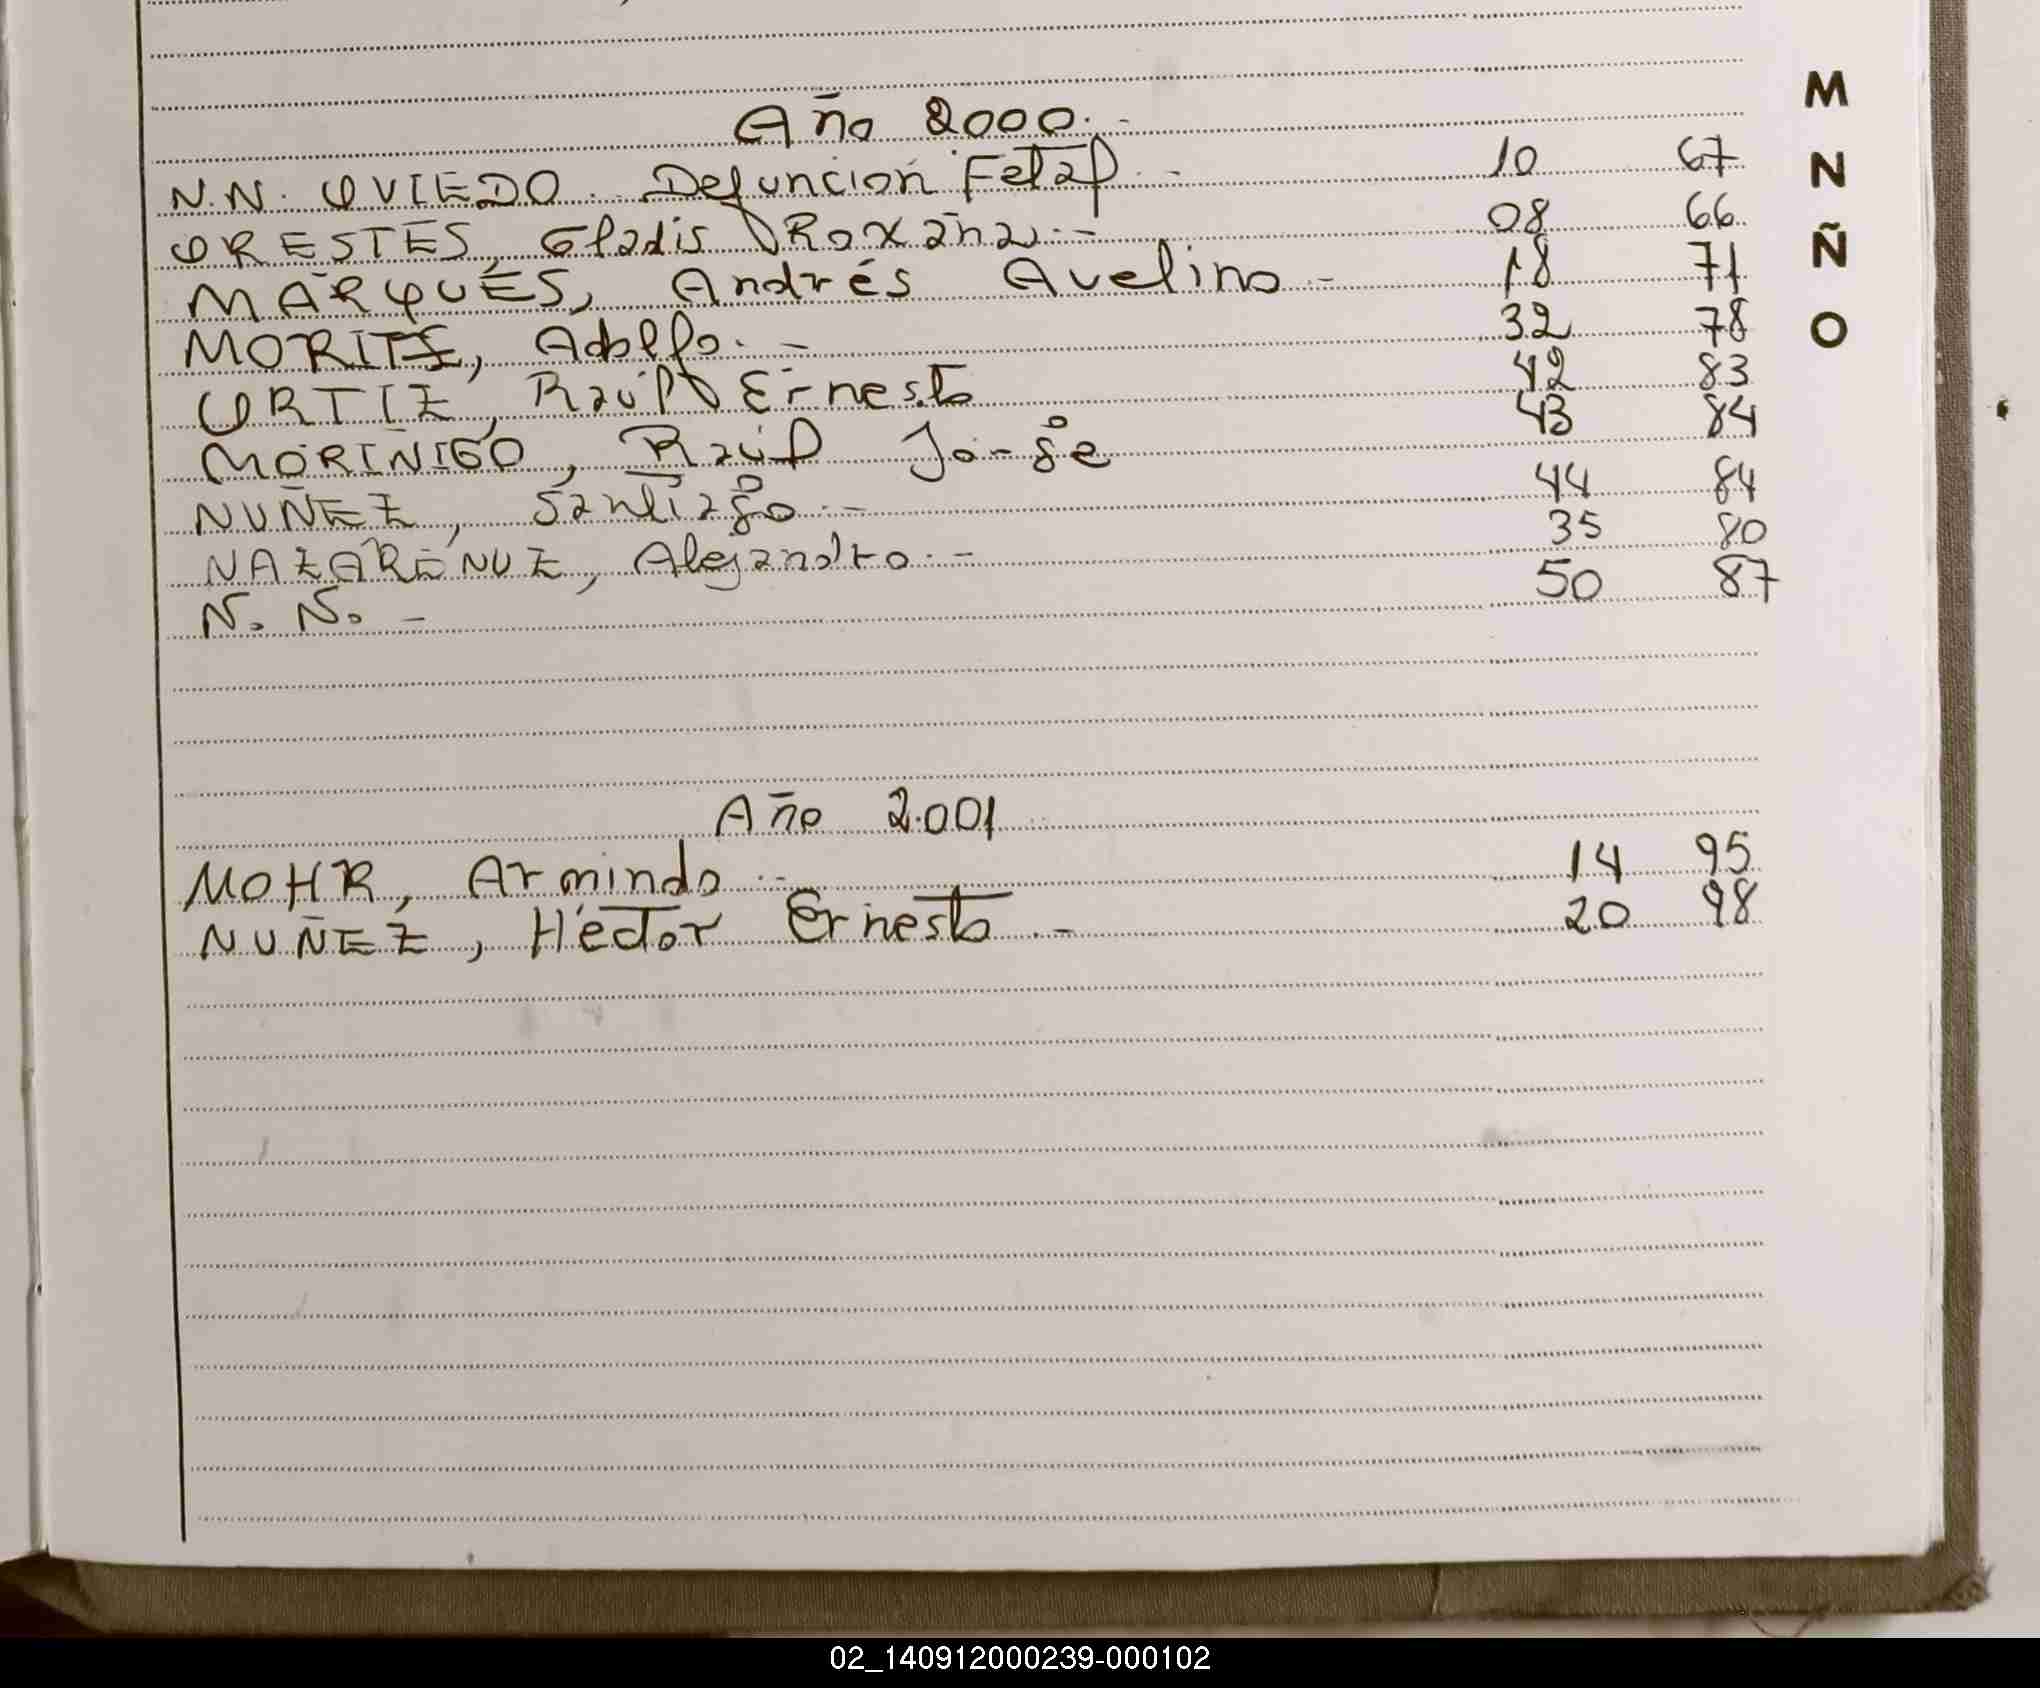 Año 2000.-
N.N. OVIEDO. Defunción Fetal.- 10 67
ORESTES, Gladis Roxana.- 08 66
MARQUÉS, Andrés Avelino - 18 71
MORITZ, Adolfo.- 32 78
ORTIZ, Raúl Ernesto 42 83
MORIÑIGO, Raúl Jorge 43 84
NUÑEZ, Santiago.- 44 84
NAZARENUZ, Alejandro.- 35 80
N. N. - 50 87
Año 2.001
MOHR, Armindo.- 14 95
NUÑEZ, Héctor Ernesto.- 20 98
M
N
Ñ
O
02_140912000239-000102